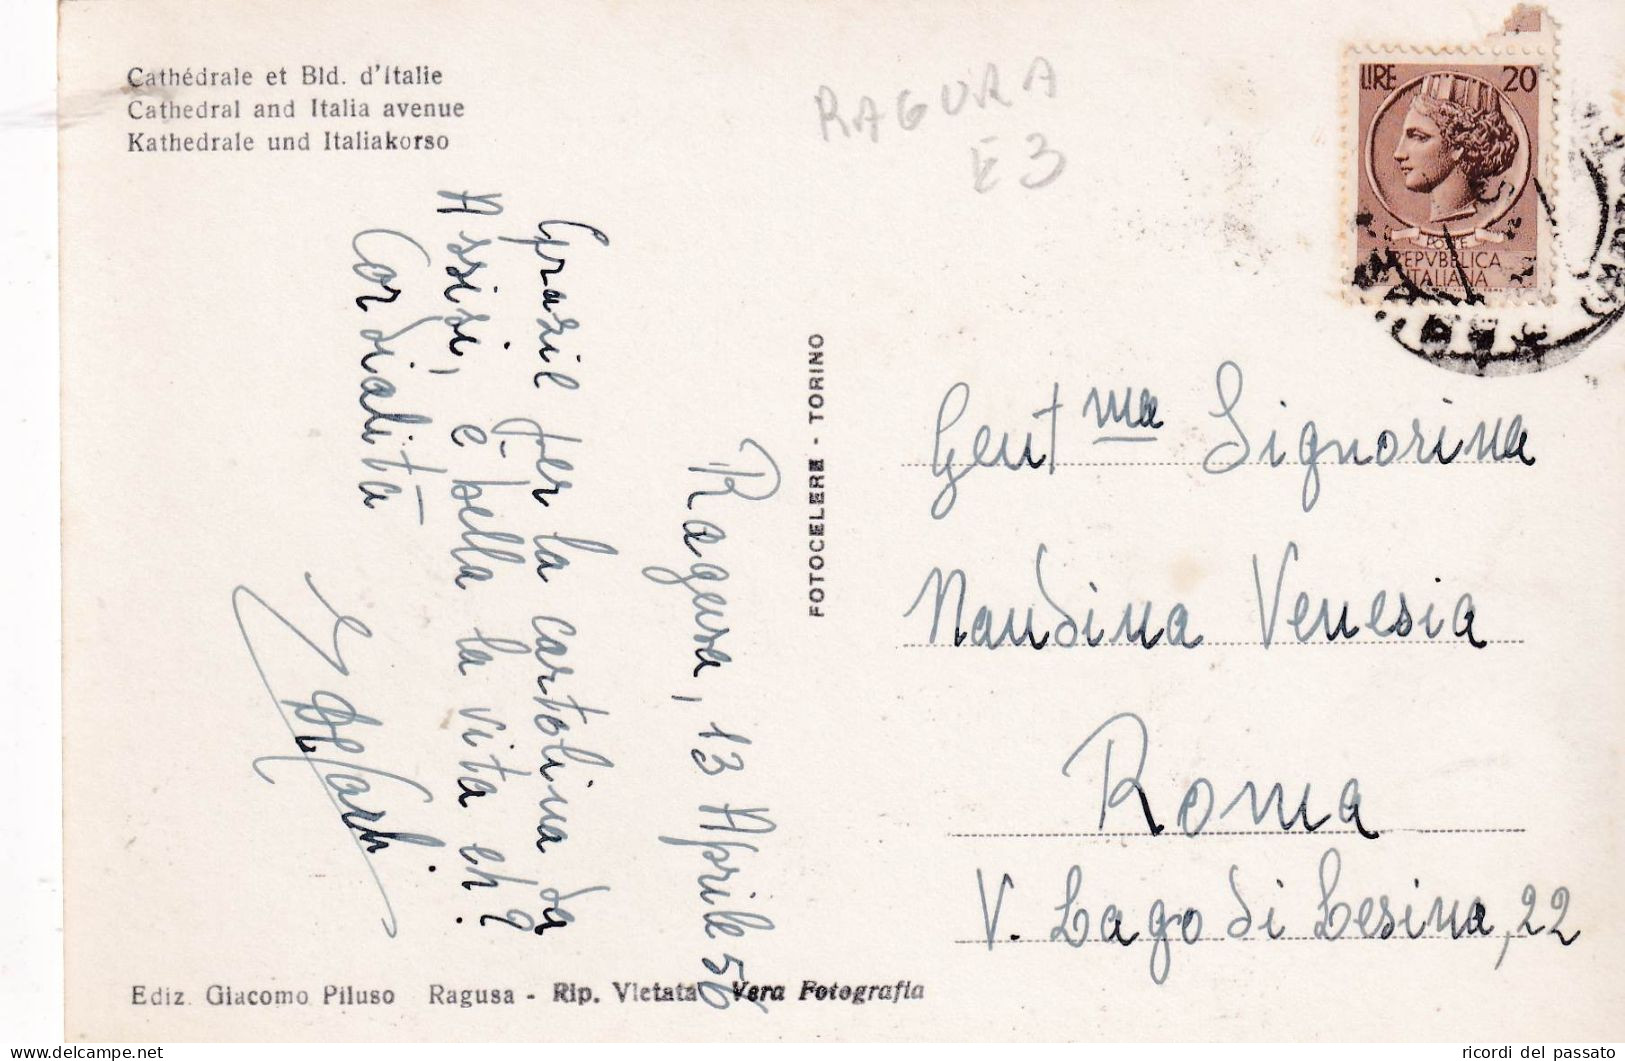 Cathédrale et Bld. d'Italie
Cathedral and Italia avenue
Kathedrale und Italiakorso
RAGURA
E 3
LIRE 20
POSTE
REPVBBLICA
ITALIANA
Ragusa, 13 Aprile 56
Grazie per la cartolina da
Assisi, è bella la vita eh?
Cordialità
FOTOCELERE - TORINO
Gent ma Signorina
Nandina Venesia
Roma
V. Lago di Lesina, 22
Ediz. Giacomo Piluso Ragusa - Rip. Vietata Vera Fotografia
ricordi del passato